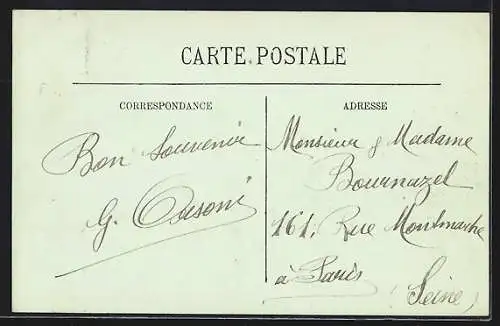 CARTE POSTALE
CORRESPONDANCE
Bon Souvenir
G. Orsoni
ADRESSE
Monsieur & Madame
Bournazel
161, Rue Montmartre
à Paris
(Seine)